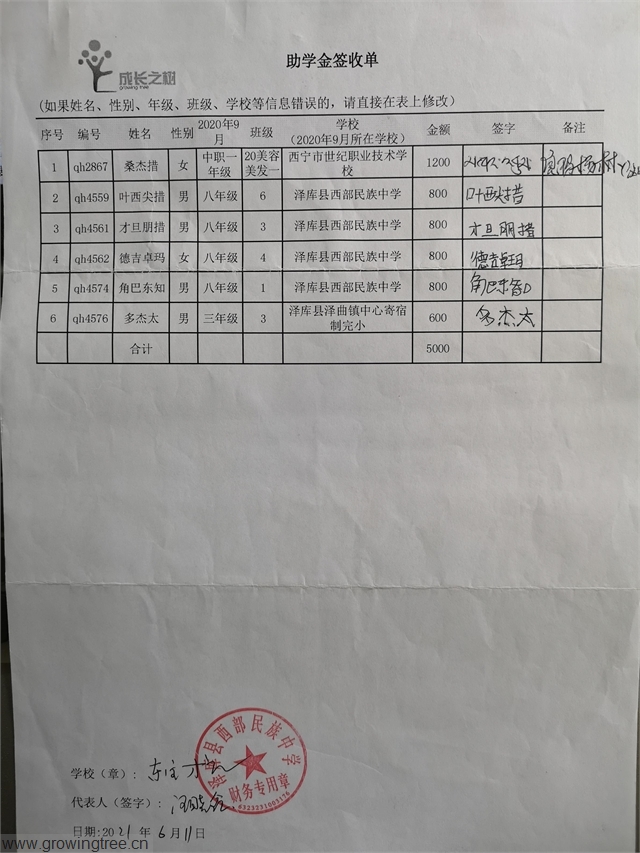 成长之树
growing tree
助学金签收单
(如果姓名、性别、年级、班级、学校等信息错误的，请直接在表上修改)
序号 编号 姓名 性别 2020年9月 班级 学校 (2020年9月所在学校) 金额 签字 备注
1 qh2867 桑杰措 女 中职一年级 20美容美发一 西宁市世纪职业技术学校 1200
2 qh4559 叶西尖措 男 八年级 6 泽库县西部民族中学 800 叶西尖措
3 qh4561 才旦朋措 男 八年级 3 泽库县西部民族中学 800 才旦朋措
4 qh4562 德吉卓玛 女 八年级 4 泽库县西部民族中学 800 德吉卓玛
5 qh4574 角巴东知 男 八年级 1 泽库县西部民族中学 800 角巴东智
6 qh4576 多杰太 男 三年级 3 泽库县泽曲镇中心寄宿制完小 600 多杰太
合计 5000
泽库县西部民族中学
财务专用章
6323231003176
学校（章）：
代表人（签字）：
日期:2021 年 6 月 11 日
www.growingtree.cn